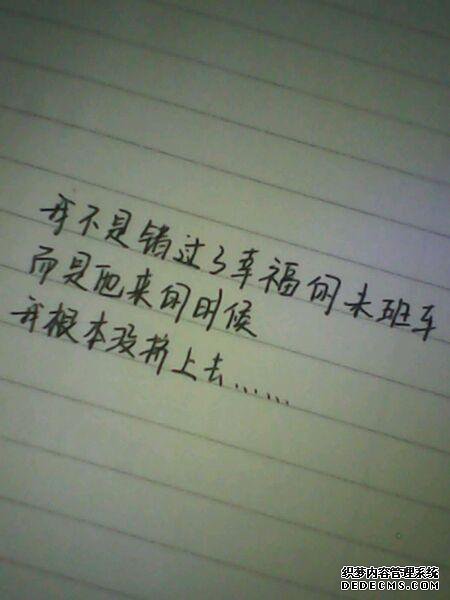 我不是错过了幸福的末班车
而是它来的时候
我根本没挤上去……
织梦内容管理系统
DEDECMS.COM